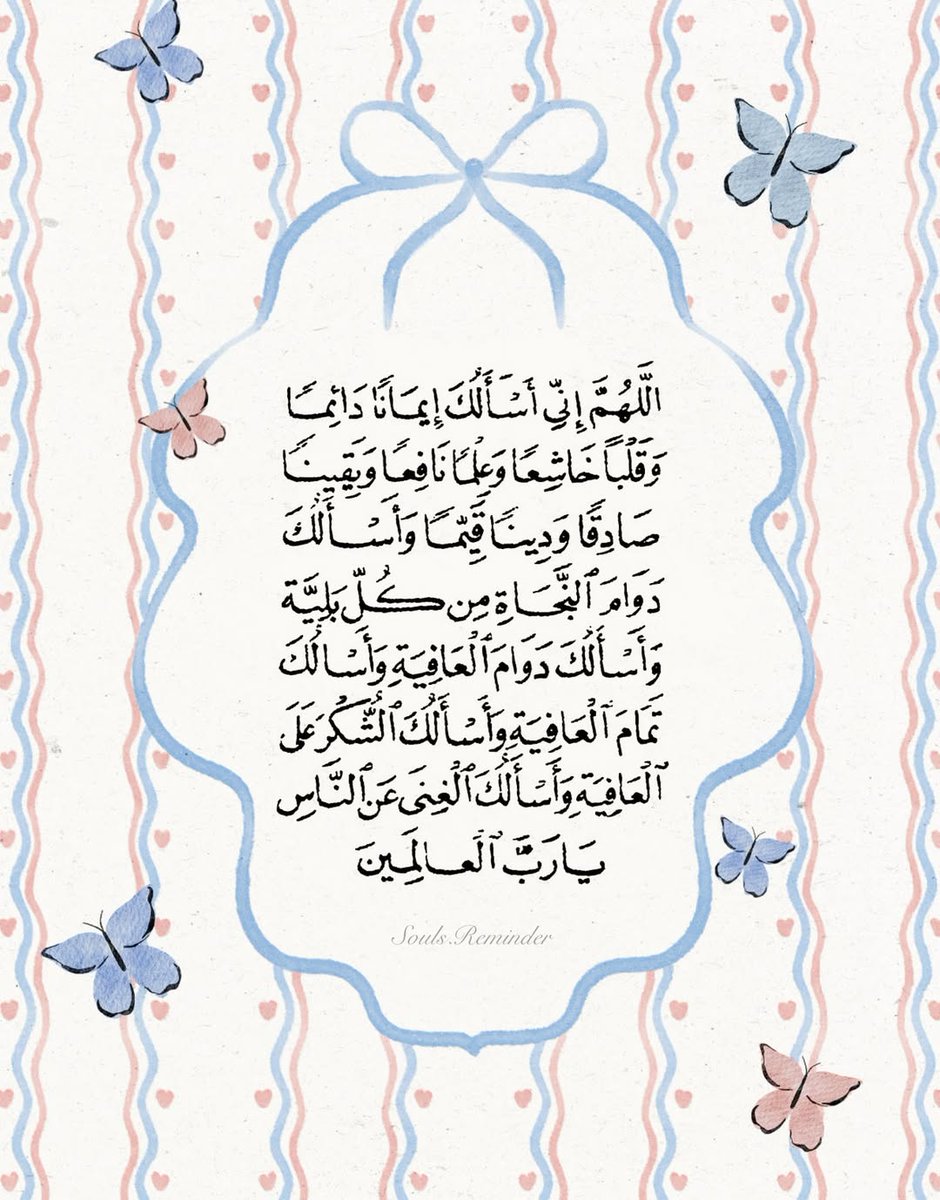 اللَّهُمَّ إِنِّي أَسْأَلُكَ إِيمَانًا دَائِمًا
وَقَلْبًا خَاشِعًا وَعِلْمًا نَافِعًا وَيَقِينًا
صَادِقًا وَدِينًا قَيِّمًا وَأَسْأَلُكَ
دَوَامَ ٱلنَّجَاةِ مِن كُلِّ بَلِيَّة
وَأَسْأَلُكَ دَوَامَ ٱلْعَافِيَةِ وَأَسْالُكَ
تَمَامَ ٱلْعَافِيَةِ وَأَسْأَلُكَ ٱلشُّكْرَ عَلَى
ٱلْعَافِيَةِ وَأَسْأَلُكَ ٱلْغِنَى عَنِ ٱلنَّاسِ
يَا رَبَّ ٱلْعَالَمِينَ
Souls.Reminder